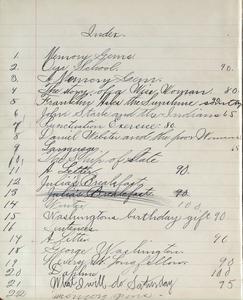 Index
1. Memory Gems
2. Our School. 90.
3. A Memory Gem.
4. The Story of a Wise Woman. 80.
5. Franklin the
6. John Stark and the Indians 65
7. Punctuation Exercise: 80
8. Daniel Webster and the poor Woman
9. Language.
10. The Ship of State
11. A Letter 90.
12. Julia's Breakfast
13. Julia's Breakfast 90.
14. Winter 100
15. Washington's birthday gift 90
16. Sentences
17. A Letter 90
18. George Washington
19. Henry W. Longfellow. 90
20. 100
21. What I will do Saturday 95
22